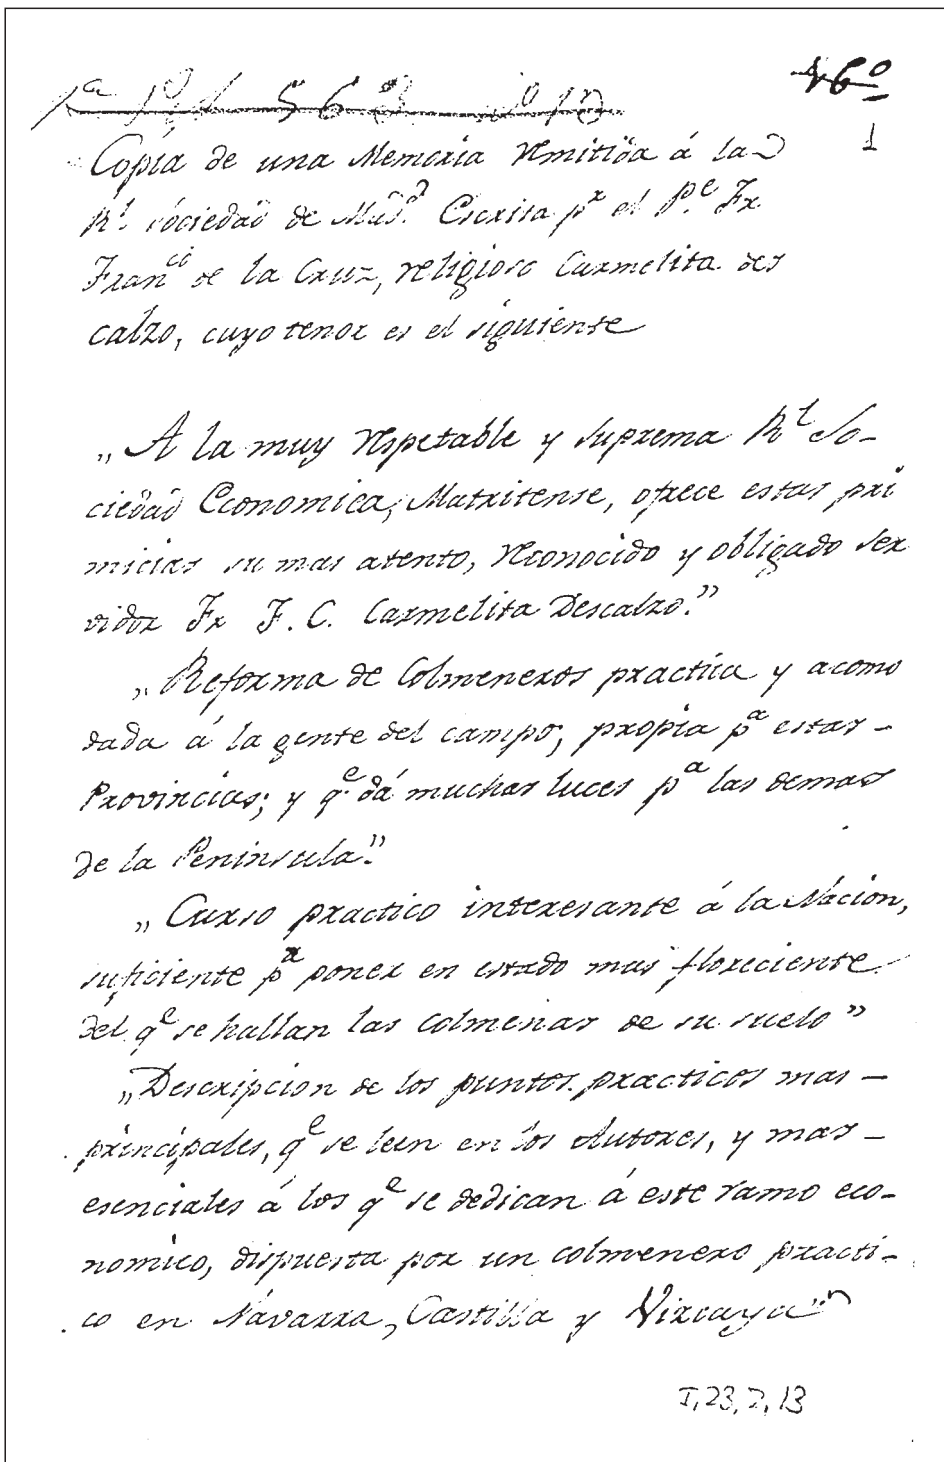 16º
1
Copia de una Memoria remitida á la
Rl. Sociedad de Madd. Escrita pr el Pe. Fr.
Franco de la Cruz, religioso Carmelita des
calzo, cuyo tenor es el siguiente
„A la muy respetable y suprema Rl So-
ciedad Economica, Matritense, ofrece estas pri
micias su mas atento, reconocido y obligado ser
vidor Fr F. C. Carmelita Descalzo.”
„Reforma de Colmeneros practica y acomo
dada á la gente del campo, propia pa estas -
Provincias; y qe. dá muchas luces pa las demas
de la Peninsula.”
„Curso practico interesante á la Nacion,
suficiente pa poner en estado mas floreciente
del qe se hallan las colmenas de su suelo”
„Descripcion de los puntos practicos mas -
principales, qe se leen en los Autores, y mas -
esenciales á los qe se dedican á este ramo eco-
nomico, dispuesta por un colmenero practi-
co en Navarra, Castilla y Vizcaya”
I, 23, 2, 13